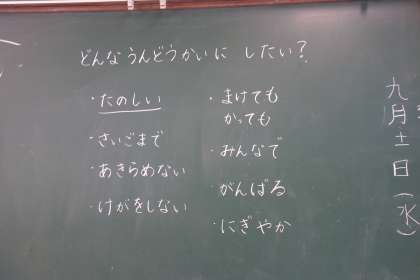 どんなうんどうかいに したい？
・たのしい
・さいごまで
・あきらめない
・けがをしない
・まけても
かっても
・みんなで
・がんばる
・にぎやか
九月土日(水)